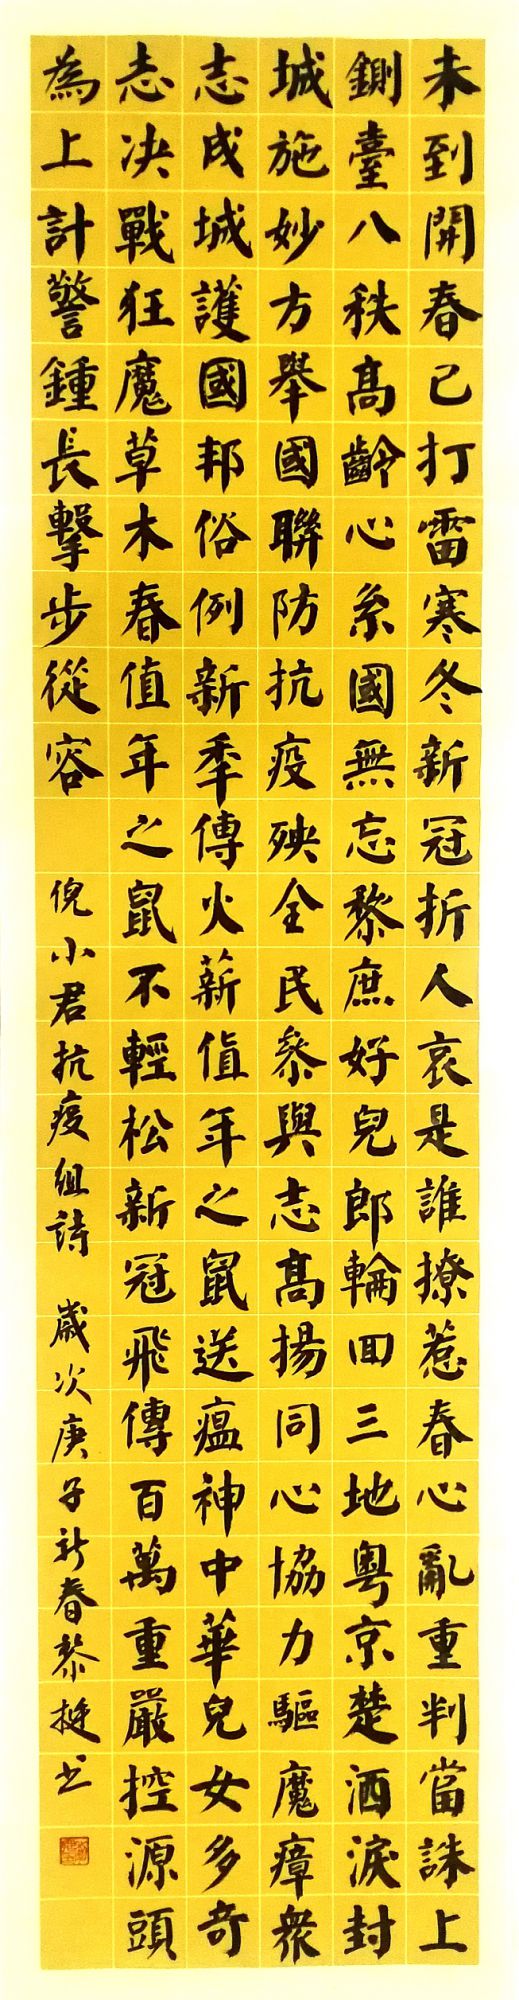 未到開春已打雷寒冬新冠折人哀是誰撩惹春心亂重判當誅上
鍘臺八秩高齡心系國無忘黎庶好兒郎輪回三地粤京楚洒淚封
城施妙方舉國聯防抗疫殃全民參與志高揚同心協力驅魔瘴衆
志成城護國邦俗例新季傳火薪值年之鼠送瘟神中華兒女多奇
志决戰狂魔草木春值年之鼠不輕松新冠飛傳百萬重嚴控源頭
為上計警鍾長擊步從容
倪小君抗疫組詩 歲次庚子新春黎挺书